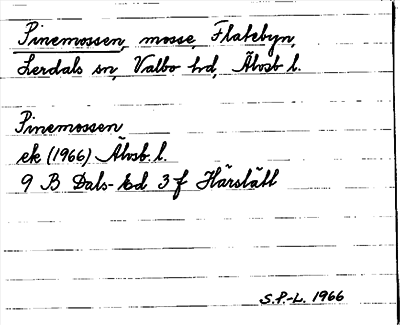 Pinemossen, mosse, Flatebyn,
Lerdals sn, Valbo hd, Älvsb l.
Pinemossen
ek (1966) Älvsb. l.
9 B Dals-Ed 3 f Härslätt
S.P-L. 1966